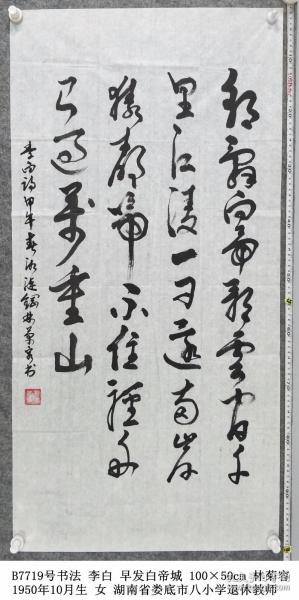 朝辭白帝彩雲間千
里江陵一日還兩岸
猿聲啼不住輕舟
已過萬重山
李白詩甲午春於漣鋼林菊容书
B7719号书法 李白 早发白帝城 100×50cm 林菊容
1950年10月生 女 湖南省娄底市八小学退休教师